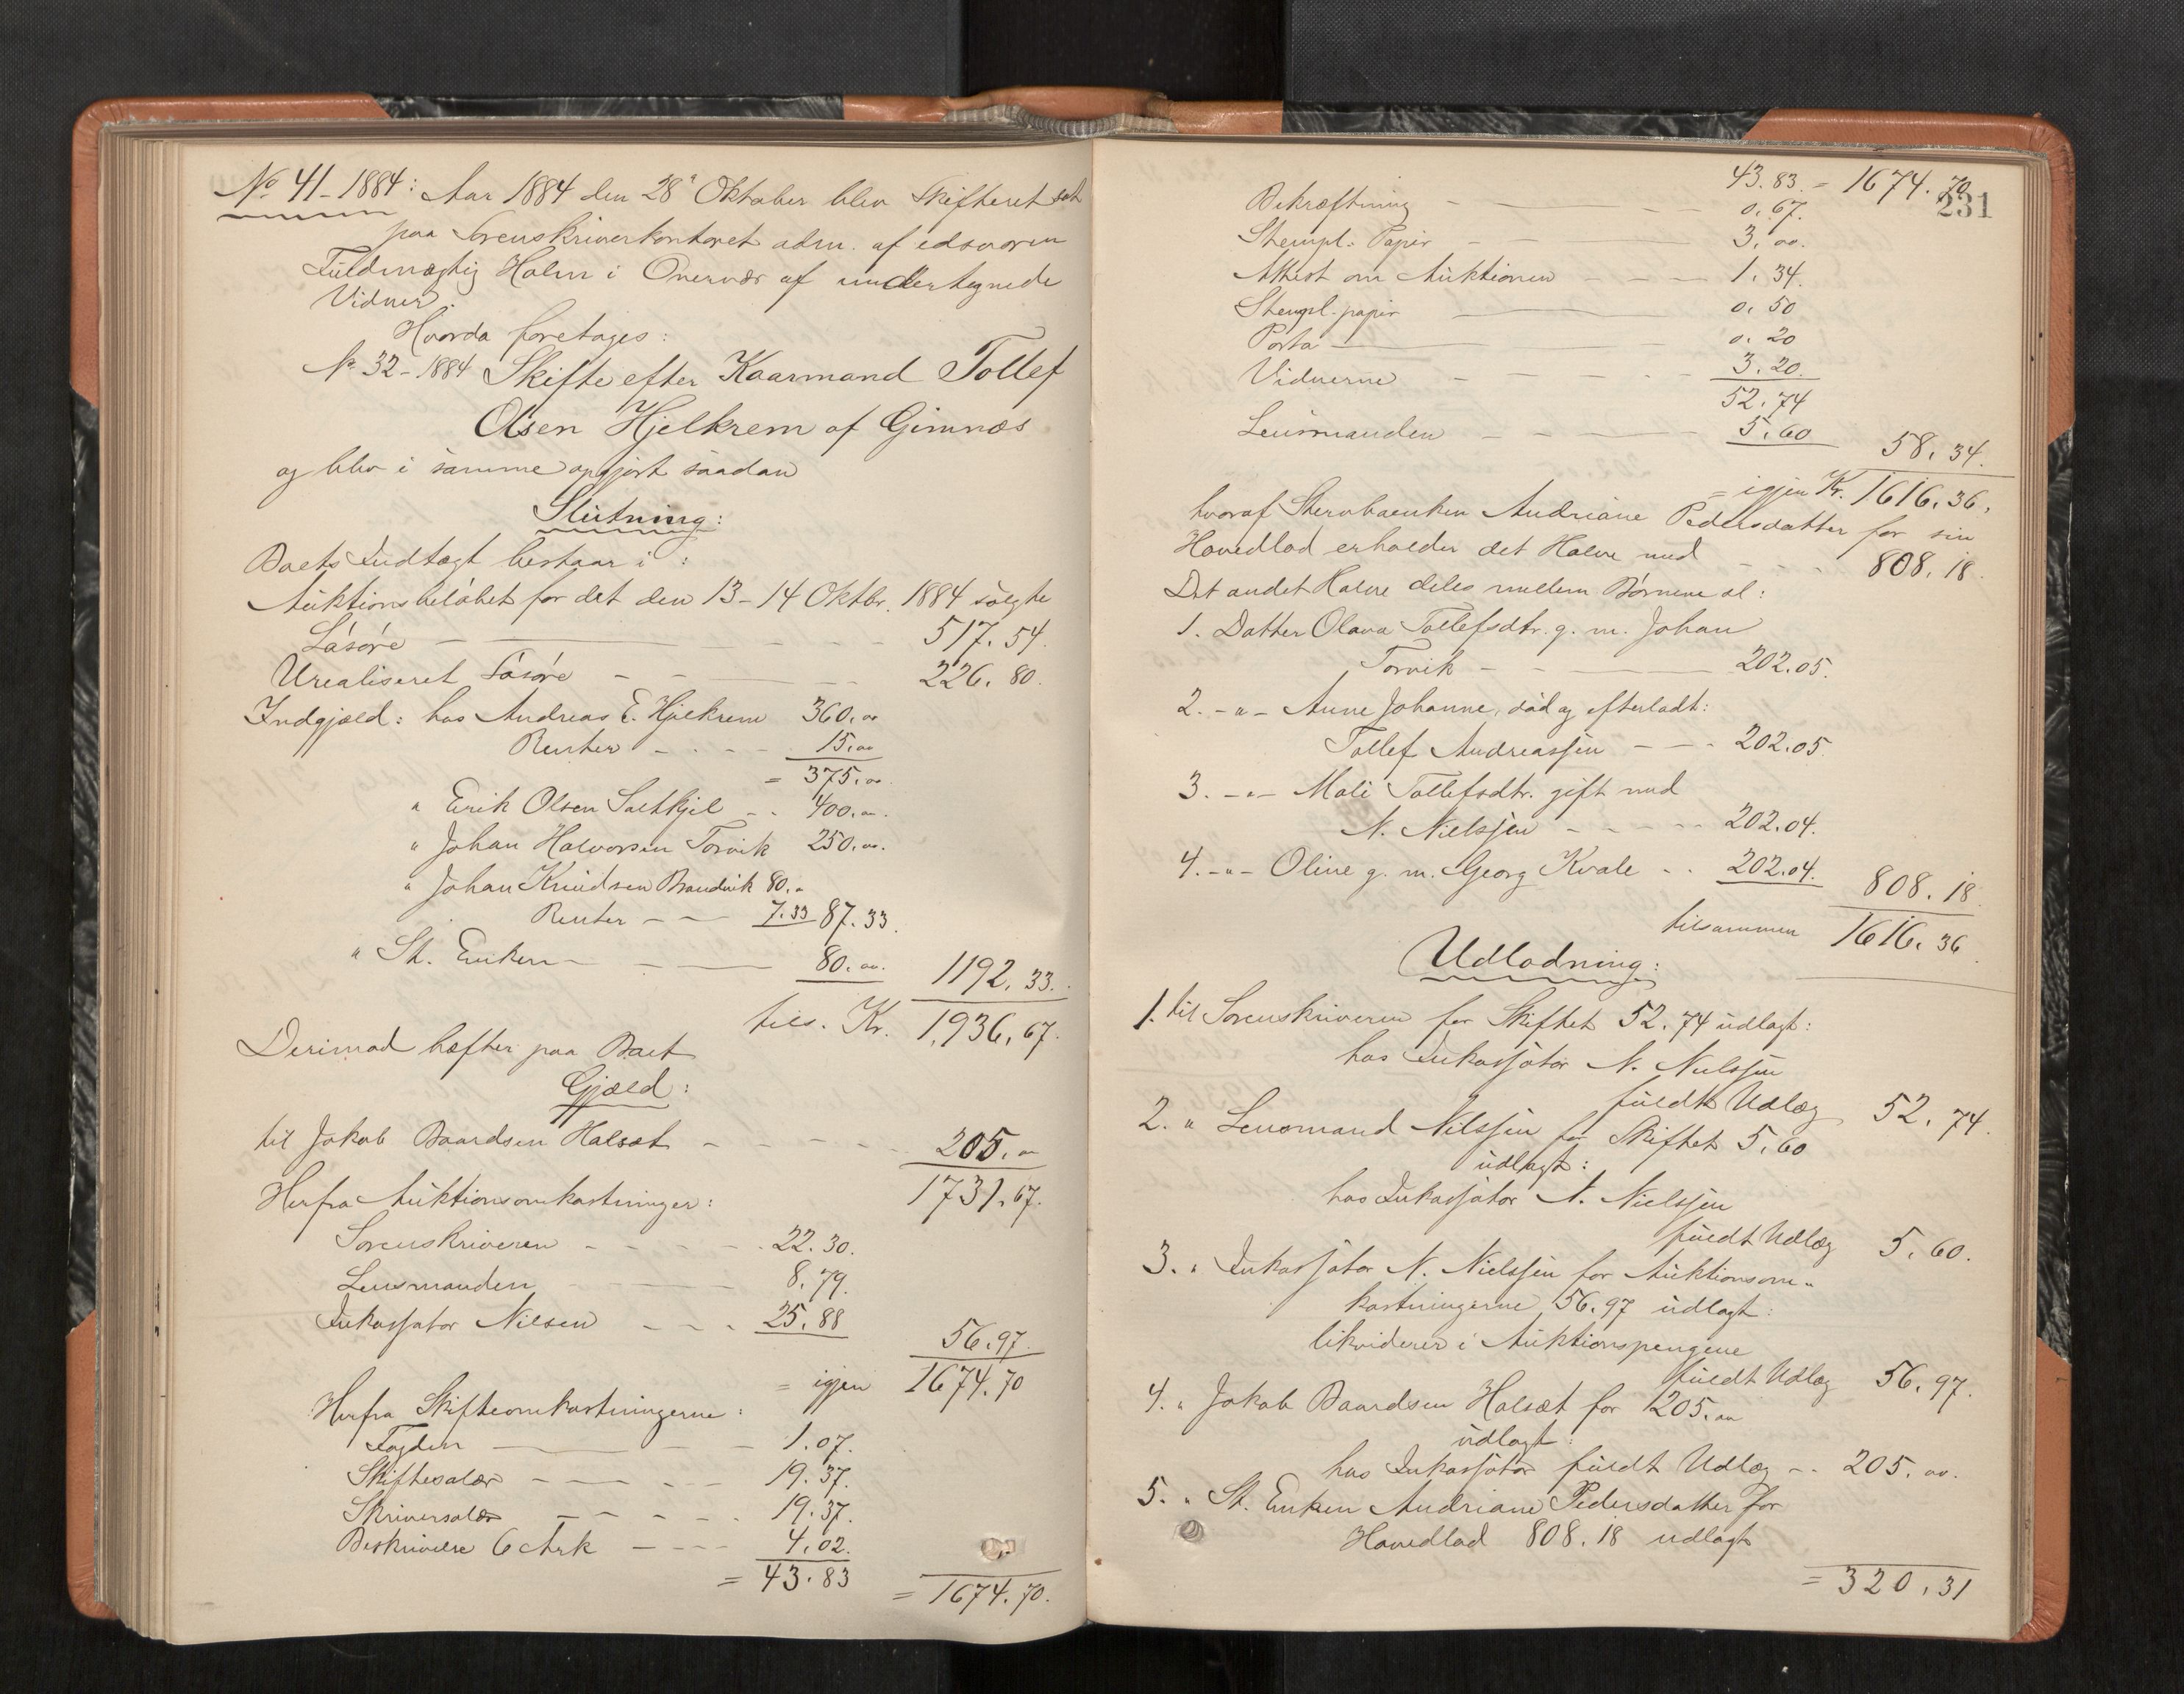 No 41-1884: Aar 1884 den 28' Oktober blev Skifteret sat
paa Sorenskriverkontoret adm. af edsvoren
Fuldmægtig Holm i Overvær af undertegnede
Vidner.
Hvorda foretages:
No 32-1884 Skifte efter Kaarmand Tollef
Olsen Hjelkrem af Gimnæs
og blev i samme opgjort saadan
Slutning:
Boets Indtægt bestaar i:
Auktionsbeløbet for det den 13-14 Oktbr. 1884 solgte
Løsøre - 517.54.
Urealiseret Løsøre - - 226.80.
Indgjæld: hos Andreas E. Hjelkrem 360.00
Renter - - - 15.00
= 375.00.
" Erik Olsen Saltkjel - - 400.00.
" Johan Halvorsen Torvik 250.00.
" Johan Knudsen Brandvik 80.-
Renter - - 7.33 87.33.
" St. Enken - 80.00. 1192.33.
tils. Kr. 1,936.67.
Derimod hefter paa Boet
Gjæld:
til Jakob Baardsen Halsæt - - - - 205.00
1731.67.
Herfra Auktionsomkostninger:
Sorenskriveren - - - - 22.30.
Lensmanden 8.79.
Inkassator Nilsen - - - 25.88
56.97.
= igjen 1674.70
Herfra Skifteomkostningerne:
Fogden - - 1.07.
Skiftesalær - - - - 19.37.
Skriversalær - - - - 19.37.
Beskrivelse 6 Ark - - - 4.02.
= 43.83 = 1674.70.
43.83. = 1674.70
231
Bekræftning - - - 0.67.
Stempl. Papir - - 3.00.
Attest om Auktionen - - - 1.34.
Stempl. papir 0.50
Porto 0.20
Vidnerne - - - - 3.20.
52.74
Lensmanden - - - 5.60
58.34.
= igjen Kr. 1616.36.
hvoraf Stervboenken Andriane Pedersdatter for sin
Hovedlod erholder det Halve med - - - 808.18.
Det andet Halve deles mellem Børnene al:
1. Datter Olava Tollefsdtr. g. m. Johan
Torvik - - 202.05.
2. -"- Anne Johanne, død og efterladt:
Tollef Andreassen - - - 202.05.
3. -"- Mali Tollefsdtr. gift med
N. Nielssen - - - - 202.04.
4. -"- Oline g. m. Georg Kvale - - 202.04. 808.18.
tilsammen 1616.36.
Udlodning:
1. til Sorenskriveren for Skiftet 52.74 udlagt:
hos Inkassator N. Nielssen
fuldt Udlæg 52.74.
2. " Lensmand Nilssen for Skiftet 5.60
udlagt:
hos Inkassator N. Nielssen
fuldt Udlæg 5.60.
3. " Inkassator N. Nielssen for Auktionsom-
kostningerne 56.97 udlagt:
likviderer i Auktionspengene
fuldt Udlæg 56.97.
4. " Jakob Baardsen Halsæt for 205.00
udlagt:
hos Inkassator fuldt Udlæg - - 205.00.
5. " St. Enken Andriane Pedersdatter for
Hovedlod 808.18 udlagt
= 320.31